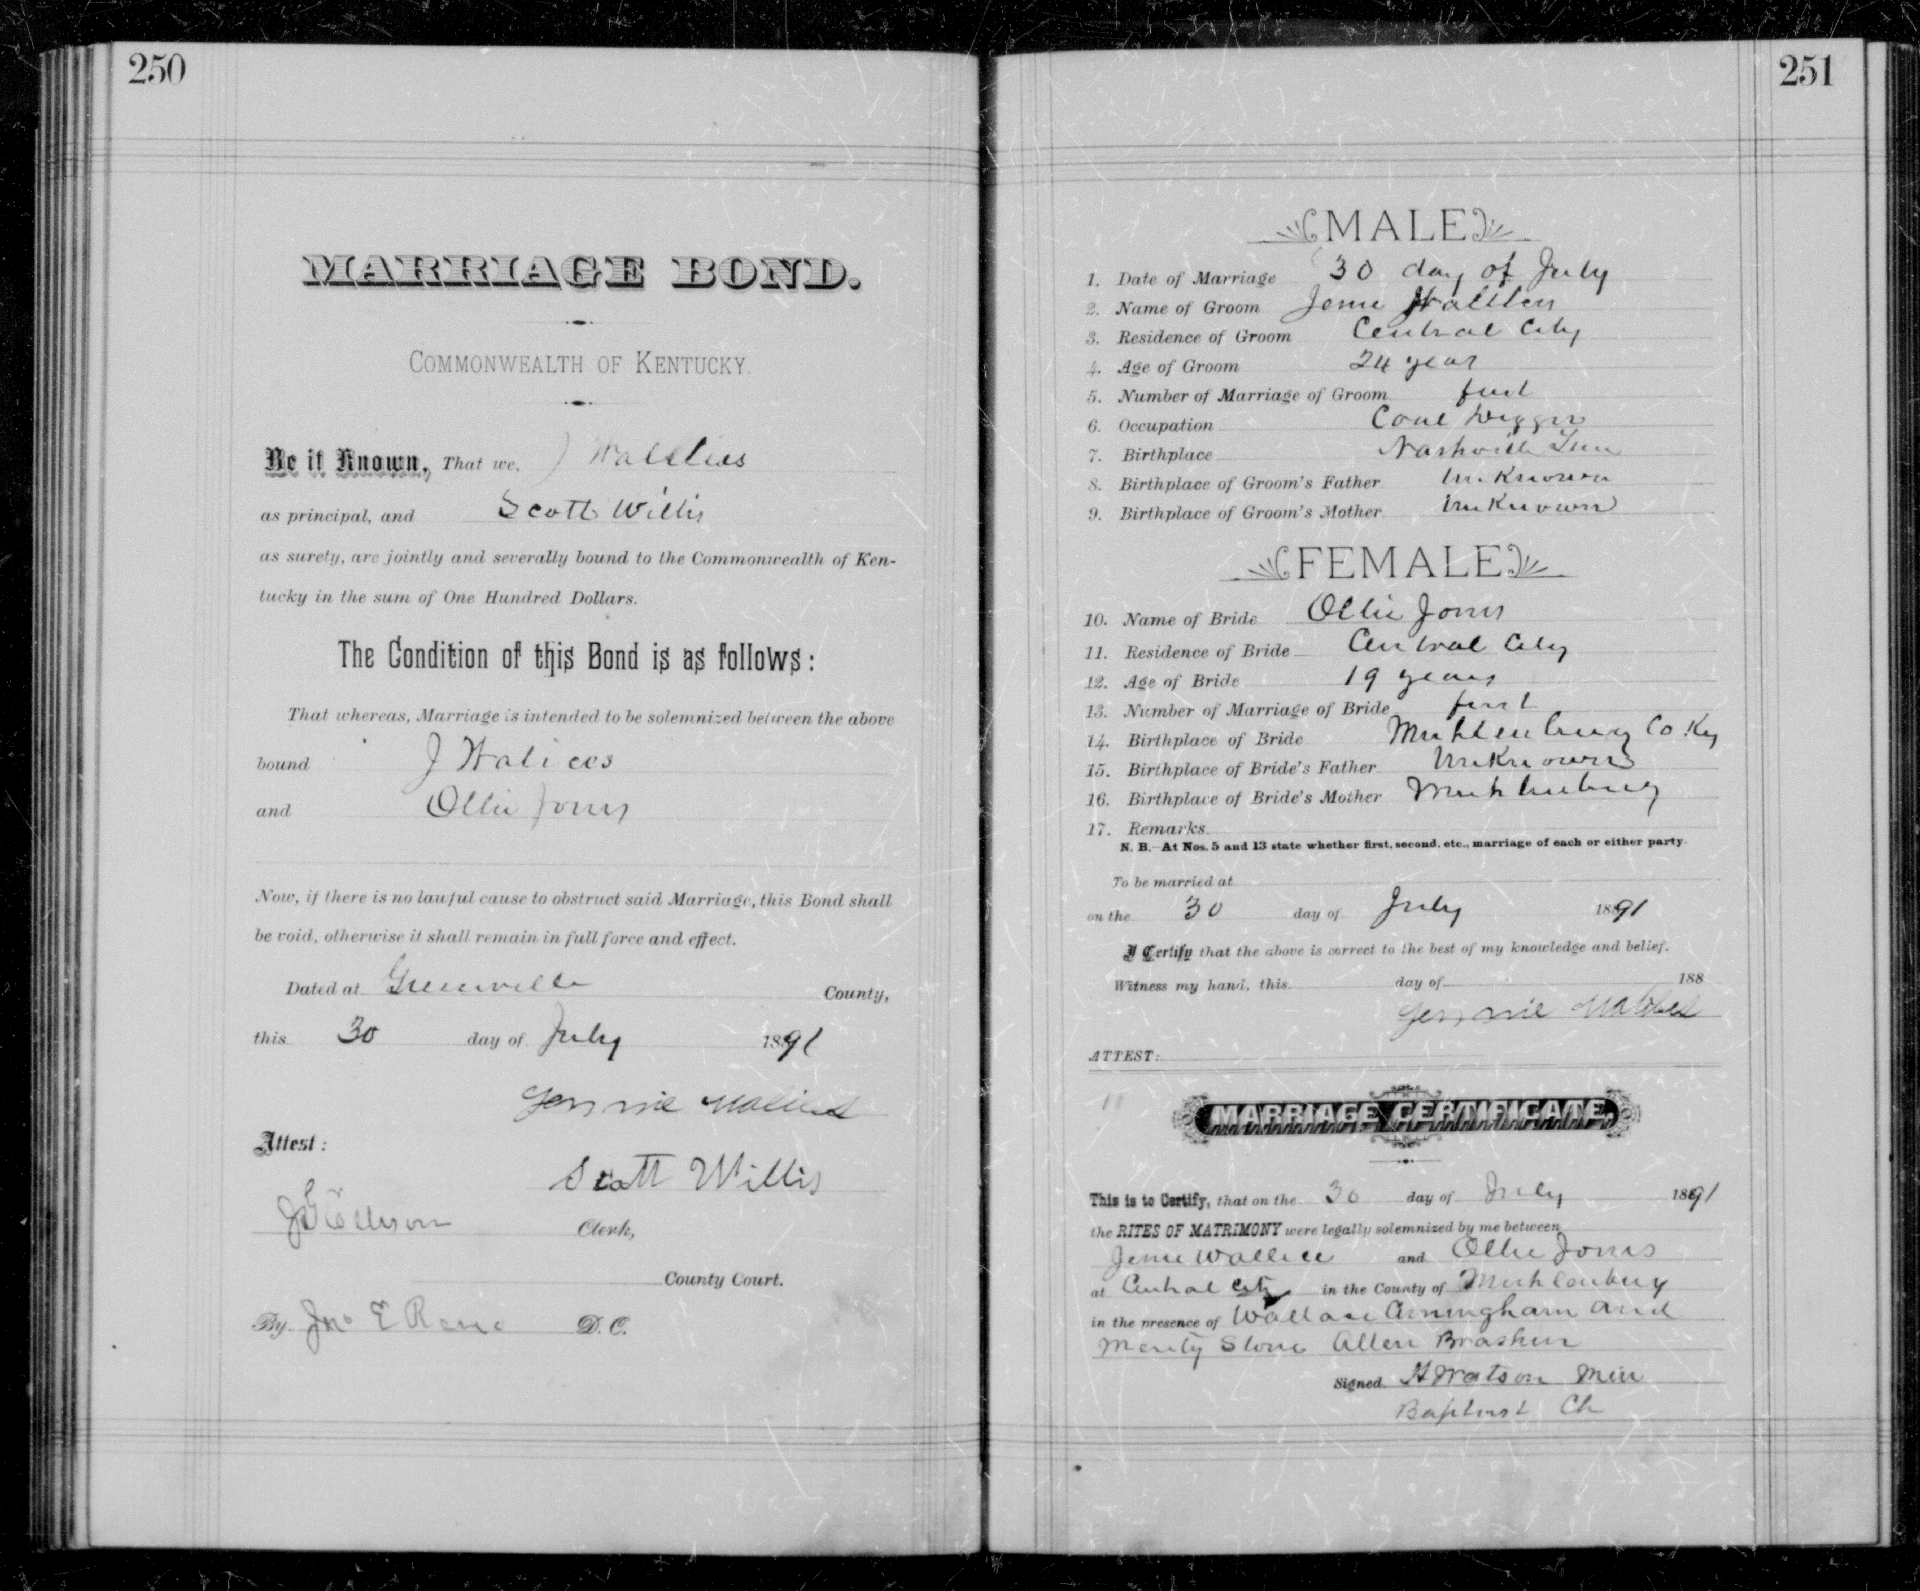 250
MARRIAGE BOND.
COMMONWEALTH OF KENTUCKY.
Be it Known, That we, J
as principal, and Scott Willis
as surety, are jointly and severally bound to the Commonwealth of Ken-
tucky in the sum of One Hundred Dollars.
The Condition of this Bond is as follows:
That whereas, Marriage is intended to be solemnized between the above
bound J
and Ollie Jones
Now, if there is no lawful cause to obstruct said Marriage, this Bond shall
be void, otherwise it shall remain in full force and effect.
Dated at Greenville County,
this 30 day of July 1891
Attest:
Scott Willis
Clerk,
County Court.
By Jno E Reno D. C.
251
MALE
1. Date of Marriage 30 day of July
2. Name of Groom
3. Residence of Groom Central City
4. Age of Groom 24 year
5. Number of Marriage of Groom first
6. Occupation Coal Digger
7. Birthplace Nashville Tenn
8. Birthplace of Groom's Father unKnown
9. Birthplace of Groom's Mother unKnown
FEMALE
10. Name of Bride Ollie Jones
11. Residence of Bride Central City
12. Age of Bride 19 years
13. Number of Marriage of Bride first
14. Birthplace of Bride Muhlenburg Co Ky
15. Birthplace of Bride's Father unKnown
16. Birthplace of Bride's Mother Muhlenburg
17. Remarks
N. B.—At Nos. 5 and 13 state whether first, second, etc., marriage of each or either party.
To be married at
on the 30 day of July 1891
I Certify that the above is correct to the best of my knowledge and belief.
Witness my hand, this day of 188
ATTEST:
MARRIAGE CERTIFICATE.
This is to Certify, that on the 30 day of July 1891
the RITES OF MATRIMONY were legally solemnized by me between
Wallace and Ollie Jones
at Central City in the County of Muhlenburg
in the presence of Wallace Cuningham and
Stone Allen Brasher
Signed H Watson Min
Baptist Ch